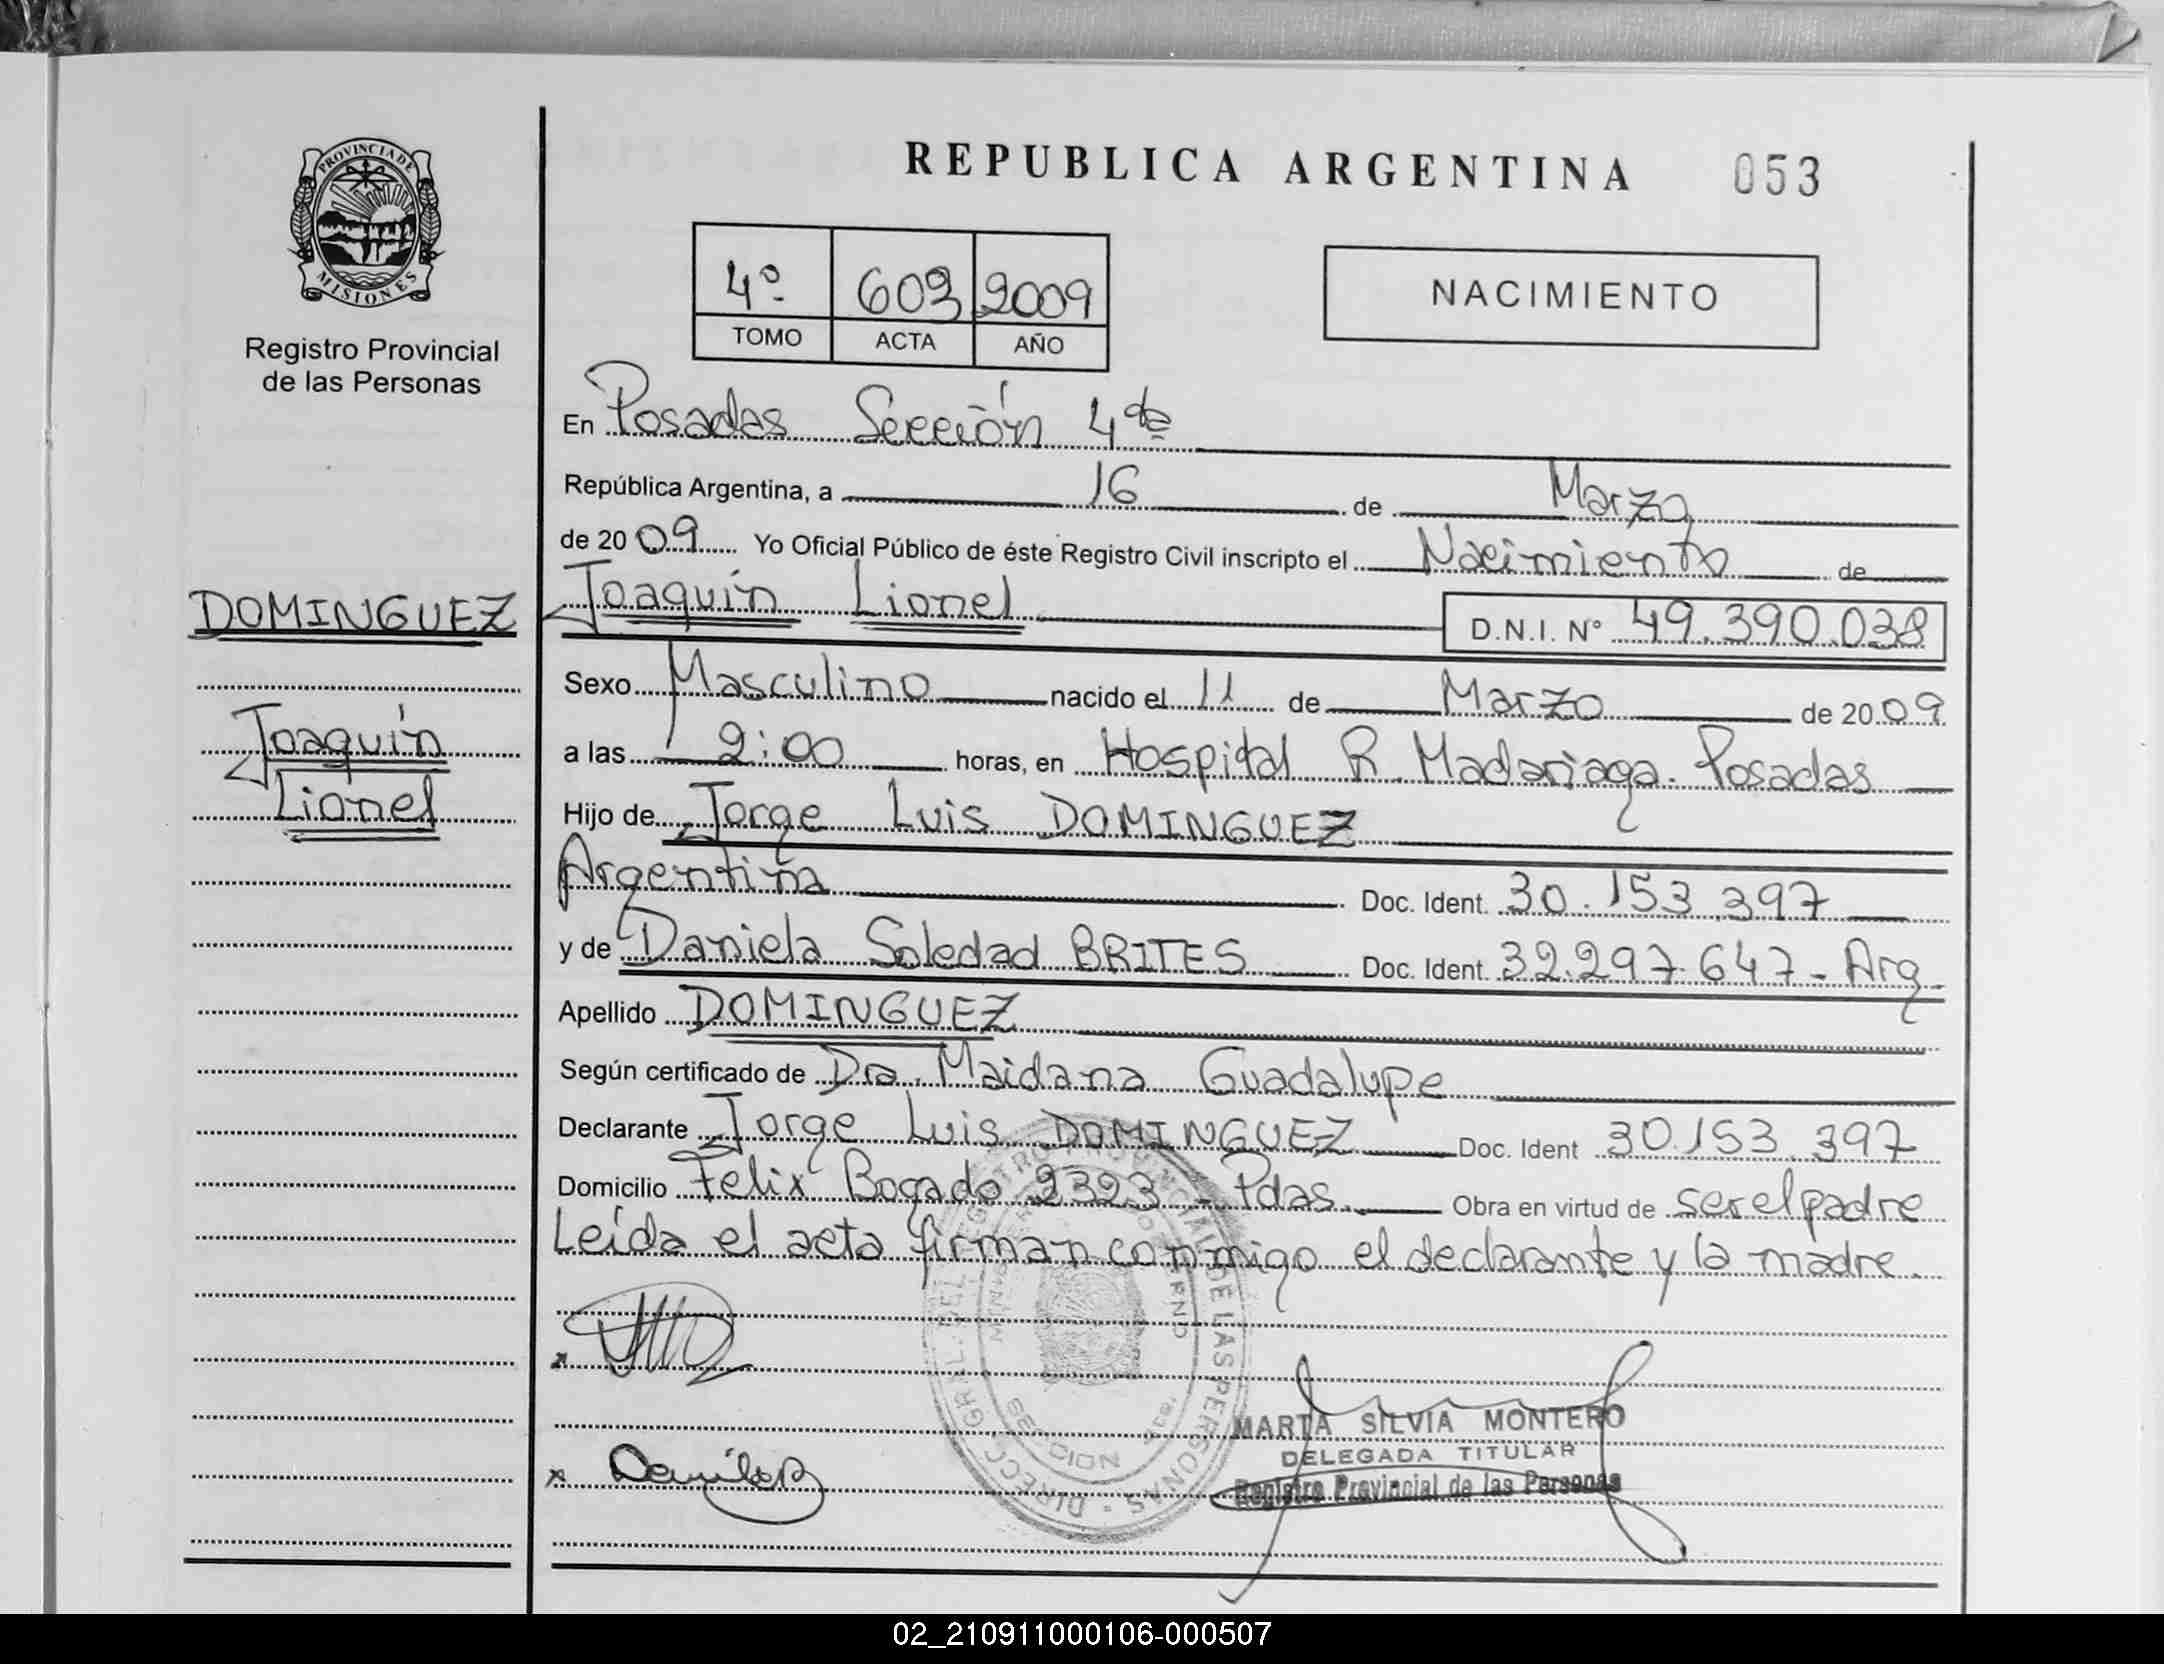 REPUBLICA ARGENTINA 053
PROVINCIA DE
MISIONES
Registro Provincial
de las Personas
4º 603 2009
TOMO ACTA AÑO
NACIMIENTO
En Posadas Sección 4ta
República Argentina, a 16 de Marzo
de 2009 Yo Oficial Público de éste Registro Civil inscripto el Nacimiento de
DOMINGUEZ
Joaquín Lionel D.N.I. Nº 49.390.038
Sexo Masculino nacido el 11 de Marzo de 2009
Joaquín
Lionel
a las 2:00 horas, en Hospital R. Madariaga. Posadas
Hijo de Jorge Luis DOMINGUEZ
Argentina Doc. Ident. 30.153.397
y de Daniela Soledad BRITES Doc. Ident. 32.297.647 - Arg.
Apellido DOMINGUEZ
Según certificado de Dra. Maidana Guadalupe
Declarante Jorge Luis DOMINGUEZ Doc. Ident 30.153.397
Domicilio Felix Bogado 2323 - Pdas. Obra en virtud de ser el padre
Leída el acta firman conmigo el declarante y la madre.
DIRECC. GRAL. DEL REGISTRO PROVINCIAL DE LAS PERSONAS
SECCION
MARTA SILVIA MONTERO
DELEGADA TITULAR
Registro Provincial de las Personas
02_210911000106-000507